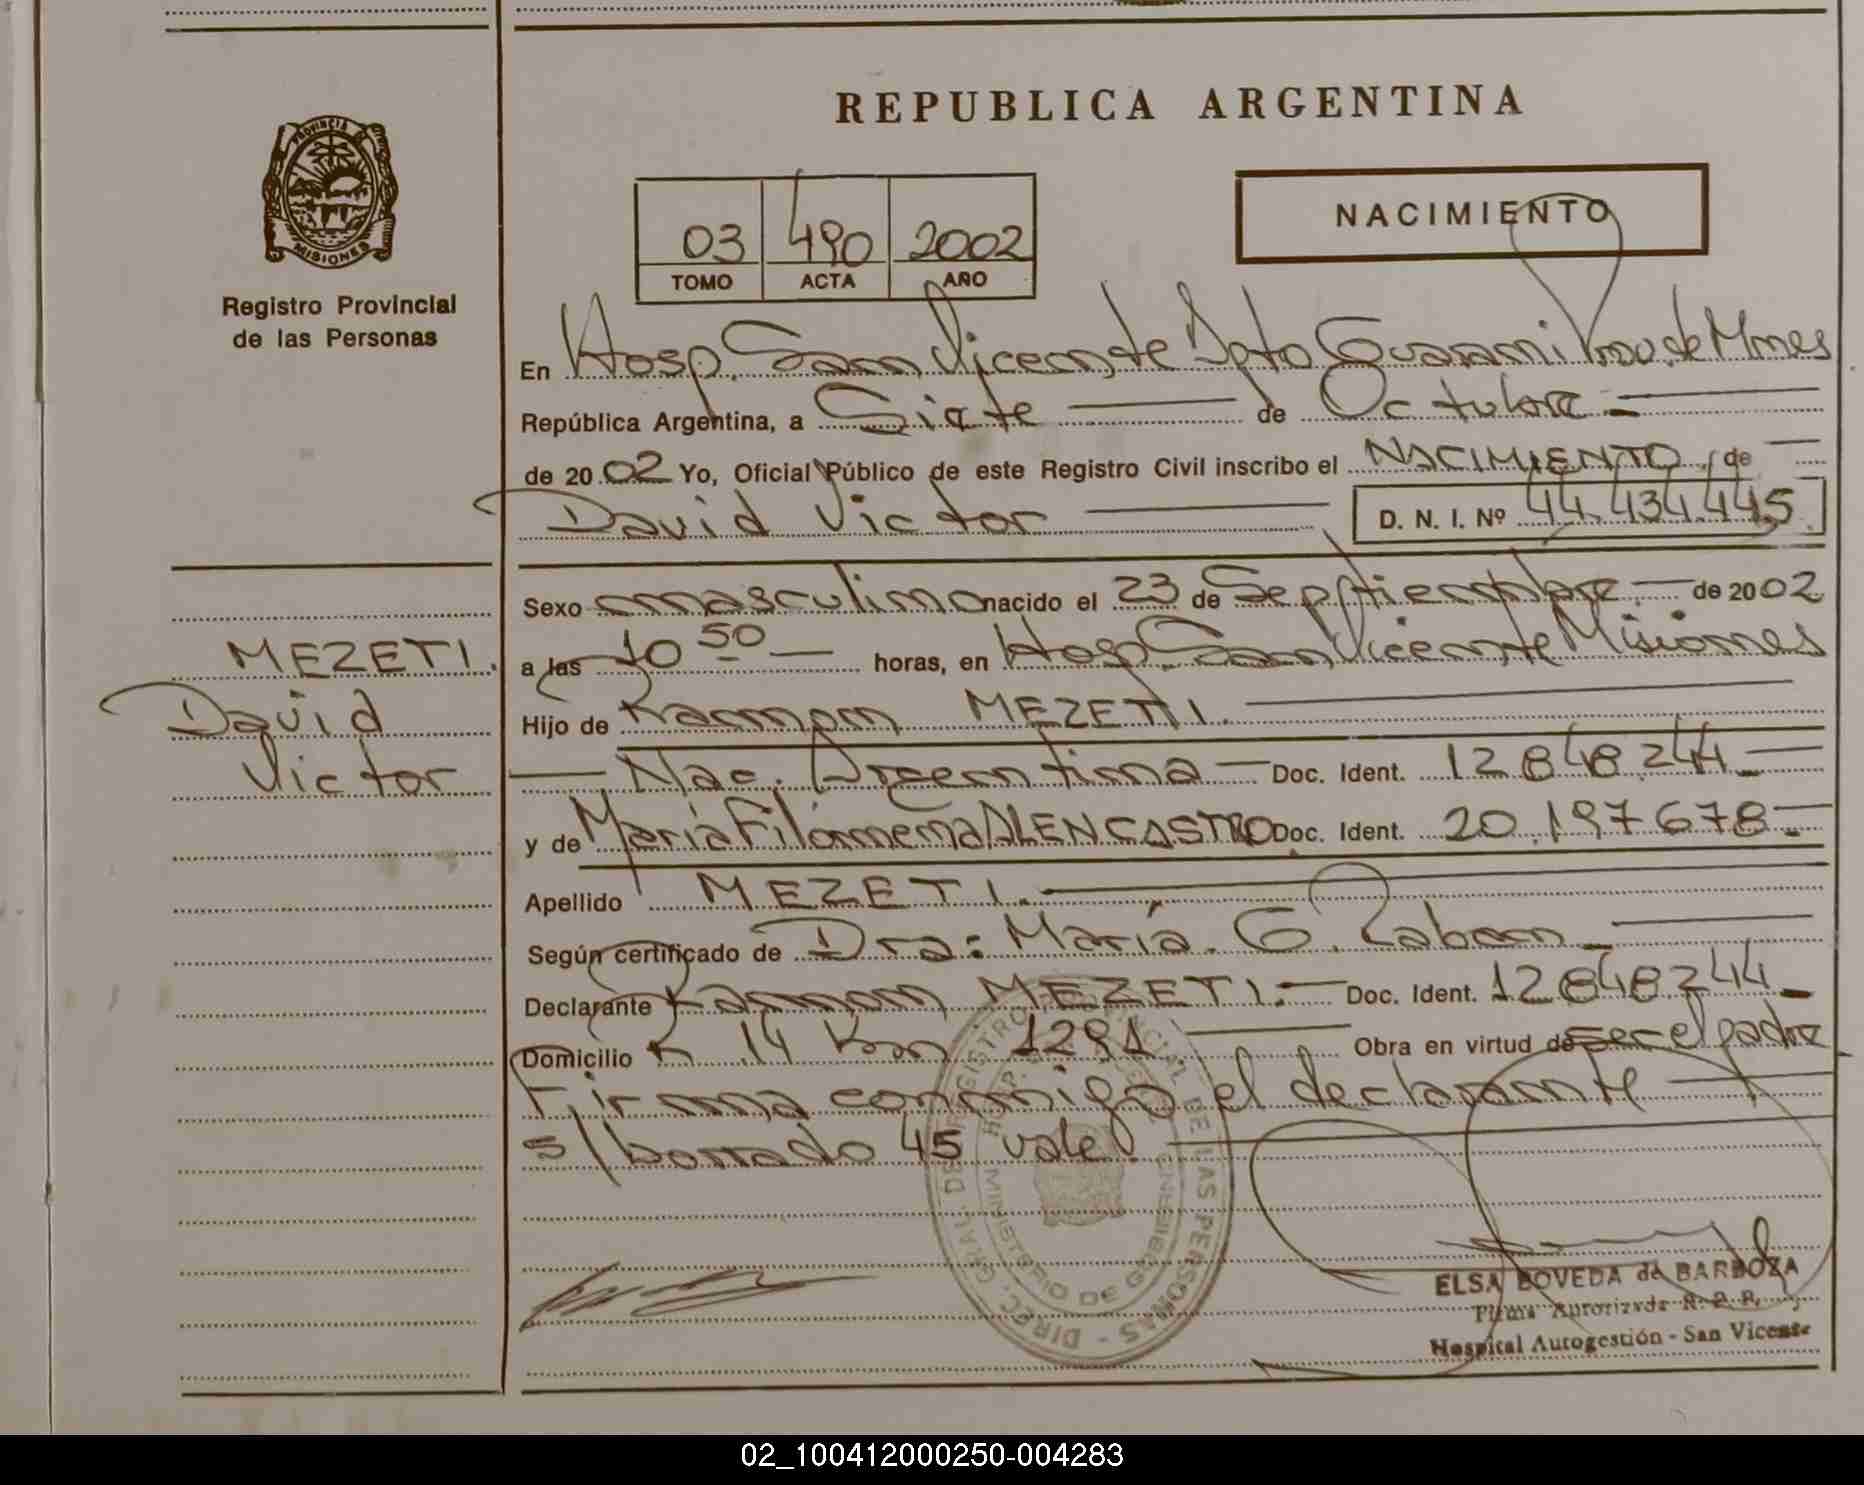 REPUBLICA ARGENTINA
PROVINCIA DE MISIONES
Registro Provincial
de las Personas
03 490 2002
TOMO ACTA AÑO
NACIMIENTO
En Hosp. San Vicente Dpto Guarani Prov. de Mnes
República Argentina, a Siete de Octubre
de 2002 Yo, Oficial Público de este Registro Civil inscribo el NACIMIENTO de
David Victor D. N. I. Nº 44.434.445
Sexo masculino nacido el 23 de Septiembre de 2002
a las 10 50 horas, en Hosp. San Vicente Misiones
Hijo de Ramon MEZETI.
Nac. Argentina Doc. Ident. 12848244
y de María Filomena ALENCASTRO Doc. Ident. 20.197678
Apellido MEZETI.
Según certificado de Dra: María. G. Raban
Declarante Ramon MEZETI. Doc. Ident. 12848244
Domicilio R 14 Km 1291 Obra en virtud de ser el padre
Firma conmigo el declarante
s/borrado 45 vale.
MEZETI.
David
Victor
DIREC. GRAL. DEL REGISTRO PROVINCIAL DE LAS PERSONAS
MINISTERIO DE GOBIERNO
ELSA BOVEDA de BARBOZA
Firma Autorizada R. P. P.
Hospital Autogestión - San Vicente
02_100412000250-004283